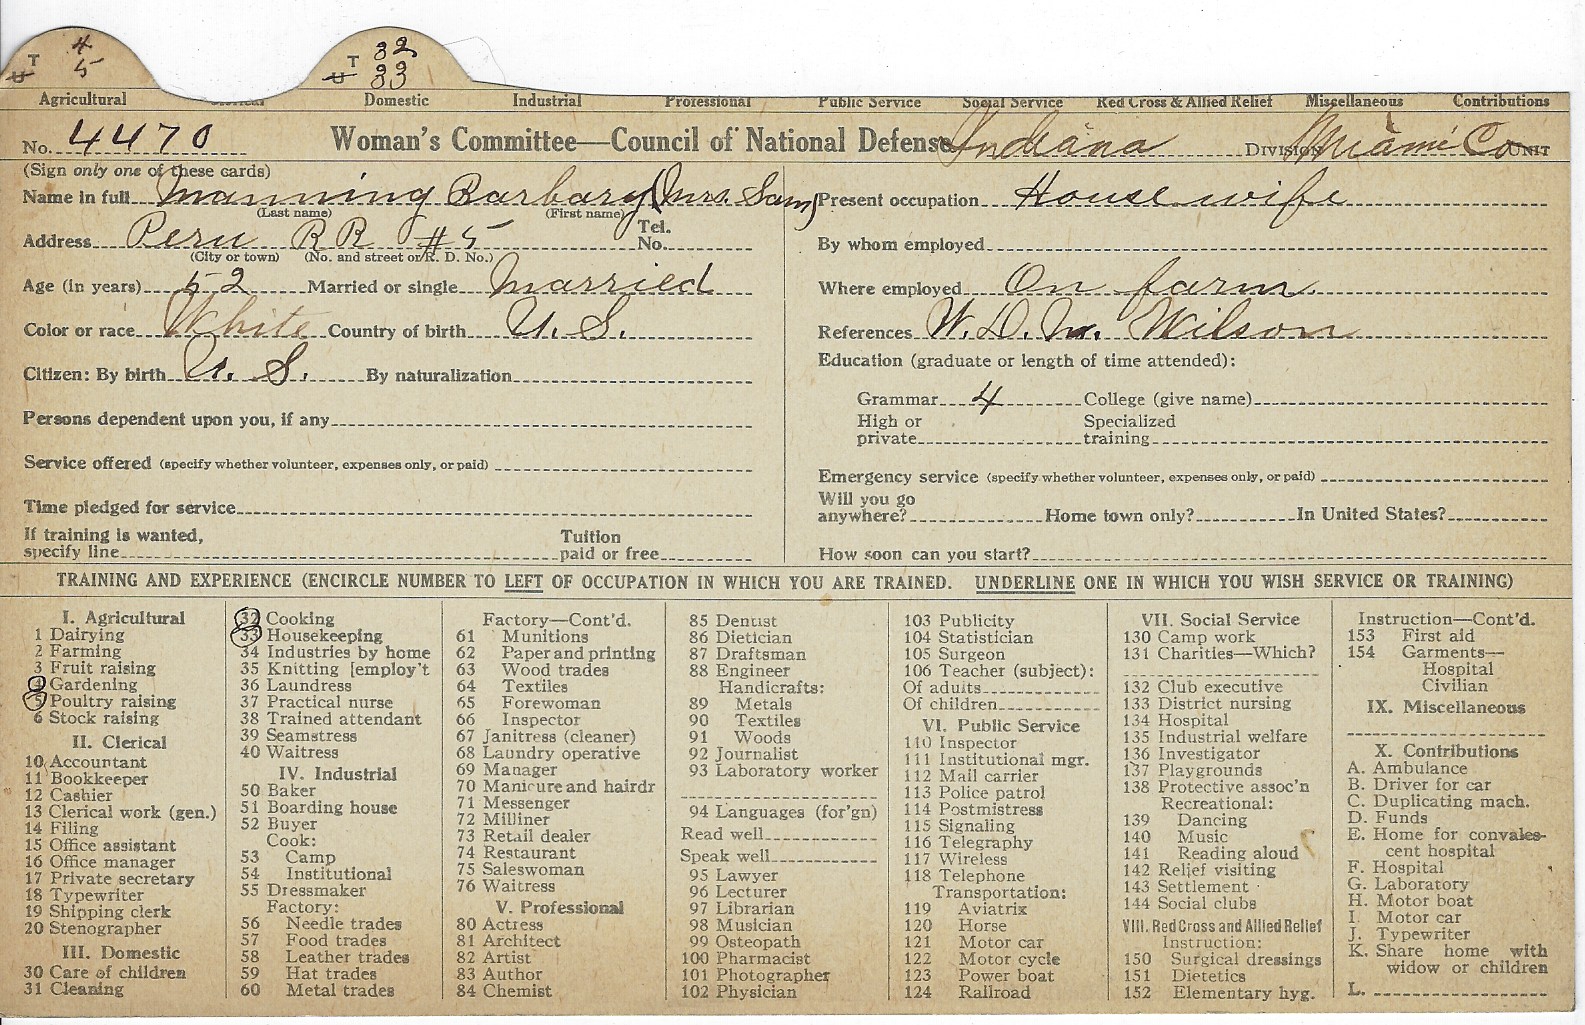 T 4 T 32
U 5 U 33
Agricultural Domestic Industrial Professional Public Service Social Service Red Cross & Allied Relief Miscellaneous Contributions
No. 4470 Woman's Committee—Council of National Defense Indiana DIVISION Miami Co UNIT
(Sign only one of these cards)
Name in full Manning Barbary (Mrs. Sam) Present occupation House wife
(Last name) (First name)
Address Peru RR #5 Tel. No. By whom employed
(City or town) (No. and street or R. D. No.)
Age (in years) 52 Married or single Married Where employed On farm
Color or race White Country of birth U. S. References W. D. M. Wilson
Education (graduate or length of time attended):
Citizen: By birth U. S. By naturalization
Grammar 4 College (give name)
Persons dependent upon you, if any High or private Specialized training
Service offered (specify whether volunteer, expenses only, or paid) Emergency service (specify whether volunteer, expenses only, or paid)
Time pledged for service Will you go anywhere? Home town only? In United States?
If training is wanted, specify line Tuition paid or free How soon can you start?
TRAINING AND EXPERIENCE (ENCIRCLE NUMBER TO LEFT OF OCCUPATION IN WHICH YOU ARE TRAINED. UNDERLINE ONE IN WHICH YOU WISH SERVICE OR TRAINING)
I. Agricultural
1 Dairying
2 Farming
3 Fruit raising
4 Gardening
5 Poultry raising
6 Stock raising
II. Clerical
10 Accountant
11 Bookkeeper
12 Cashier
13 Clerical work (gen.)
14 Filing
15 Office assistant
16 Office manager
17 Private secretary
18 Typewriter
19 Shipping clerk
20 Stenographer
III. Domestic
30 Care of children
31 Cleaning
32 Cooking
33 Housekeeping
34 Industries by home
35 Knitting [employ't
36 Laundress
37 Practical nurse
38 Trained attendant
39 Seamstress
40 Waitress
IV. Industrial
50 Baker
51 Boarding house
52 Buyer
Cook:
53 Camp
54 Institutional
55 Dressmaker
Factory:
56 Needle trades
57 Food trades
58 Leather trades
59 Hat trades
60 Metal trades
Factory—Cont'd.
61 Munitions
62 Paper and printing
63 Wood trades
64 Textiles
65 Forewoman
66 Inspector
67 Janitress (cleaner)
68 Laundry operative
69 Manager
70 Manicure and hairdr
71 Messenger
72 Milliner
73 Retail dealer
74 Restaurant
75 Saleswoman
76 Waitress
V. Professional
80 Actress
81 Architect
82 Artist
83 Author
84 Chemist
85 Dentist
86 Dietician
87 Draftsman
88 Engineer
Handicrafts:
89 Metals
90 Textiles
91 Woods
92 Journalist
93 Laboratory worker
94 Languages (for'gn)
Read well
Speak well
95 Lawyer
96 Lecturer
97 Librarian
98 Musician
99 Osteopath
100 Pharmacist
101 Photographer
102 Physician
103 Publicity
104 Statistician
105 Surgeon
106 Teacher (subject):
Of adults
Of children
VI. Public Service
110 Inspector
111 Institutional mgr.
112 Mail carrier
113 Police patrol
114 Postmistress
115 Signaling
116 Telegraphy
117 Wireless
118 Telephone
Transportation:
119 Aviatrix
120 Horse
121 Motor car
122 Motor cycle
123 Power boat
124 Railroad
VII. Social Service
130 Camp work
131 Charities—Which?
132 Club executive
133 District nursing
134 Hospital
135 Industrial welfare
136 Investigator
137 Playgrounds
138 Protective assoc'n
Recreational:
139 Dancing
140 Music
141 Reading aloud
142 Relief visiting
143 Settlement
144 Social clubs
VIII. Red Cross and Allied Relief
Instruction:
150 Surgical dressings
151 Dietetics
152 Elementary hyg.
Instruction—Cont'd.
153 First aid
154 Garments—
Hospital
Civilian
IX. Miscellaneous
X. Contributions
A. Ambulance
B. Driver for car
C. Duplicating mach.
D. Funds
E. Home for convales-
cent hospital
F. Hospital
G. Laboratory
H. Motor boat
I. Motor car
J. Typewriter
K. Share home with
widow or children
L.